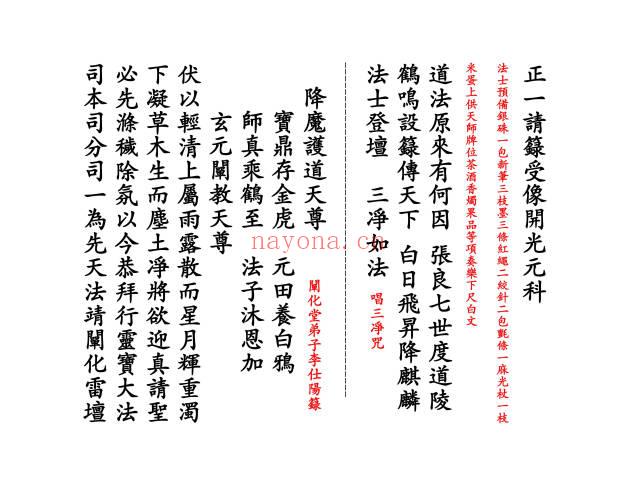 正一請籙受像開光元科
法士預備銀硃一包新筆三枝墨三條紅繩二絞針二包氈條一麻光杖一枝
米蛋上供天師牌位茶酒香燭果品等項奏樂下尺白文
道法原來有何因 張良七世度道陵
鶴鳴設籙傳天下 白日飛昇降麒麟
法士登壇 三凈如法 唱三凈咒
降魔護道天尊 闡化堂弟子李仕陽籙
寶鼎存金虎 元田養白鴉
師真乘鶴至 法子沐恩加
玄元闡教天尊
伏以輕清上屬雨露散而星月輝重濁
下凝草木生而塵土凈將欲迎真請聖
必先滌穢除氛以今恭拜行靈寶大法
司本司分司一為先天法靖闡化雷壇
nayona.cn